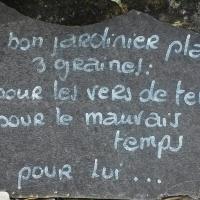 bon jardinier pla
3 graines:
pour les vers de te
pour le mauvais
temps
pour lui...